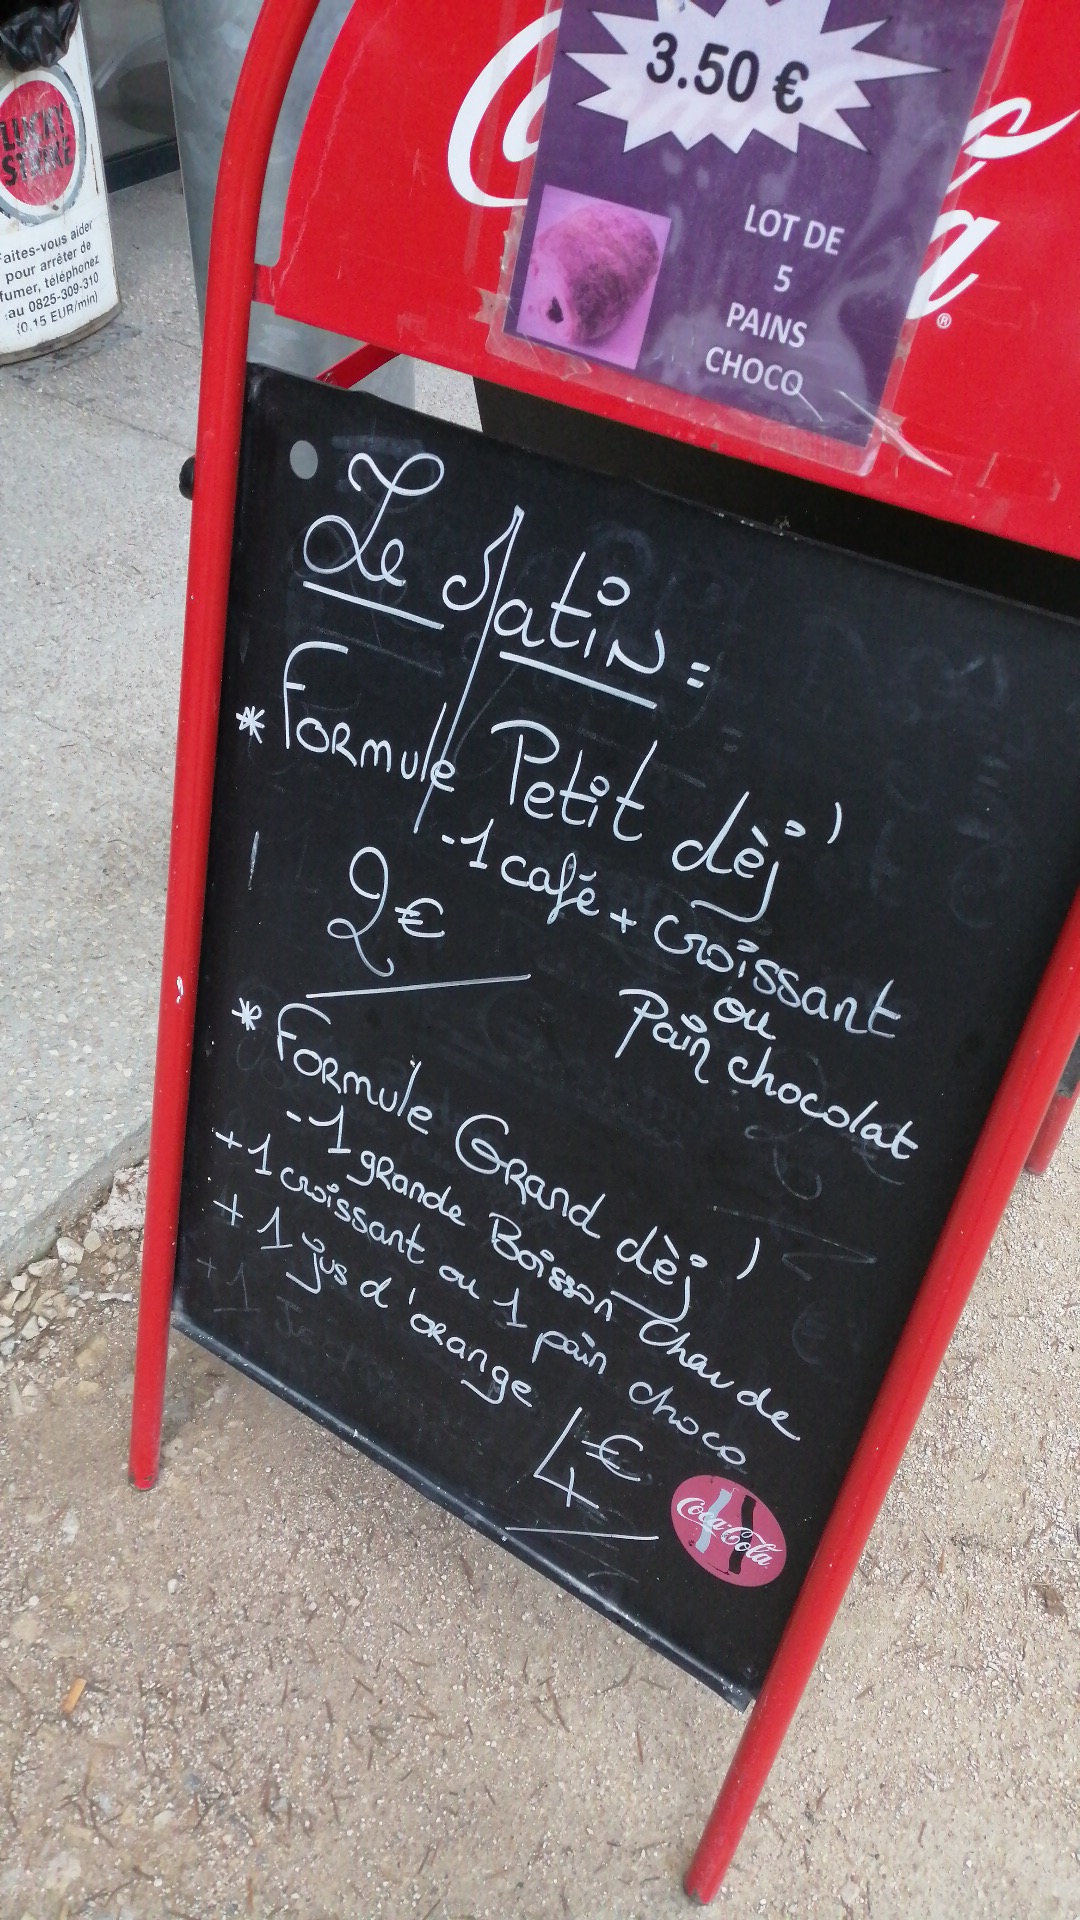 LUCKY
STRIKE
Faites-vous aider
pour arrêter de
fumer, téléphonez
au 0825-309-310
(0.15 EUR/min)
3.50 €
LOT DE
5
PAINS
CHOCO
Le Matin :
* Formule Petit dèj'
-1 café + croissant
ou
Pain chocolat
2€
* Formule Grand dèj'
-1 grande Boisson chaude
+1 croissant ou 1 pain choco
+ 1 jus d'orange
4€
Coca-Cola